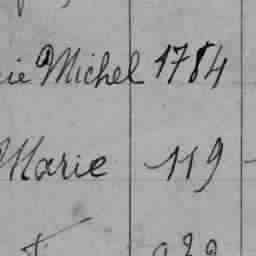 ie Michel 1784
Marie 119